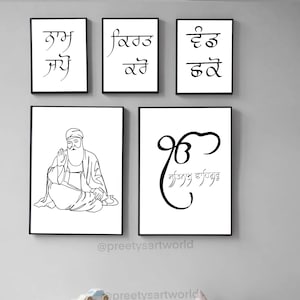 ਨਾਮ
ਜਪੋ
ਕਿਰਤ
ਕਰੋ
ਵੰਡ
ਛਕੋ
ੴ
ਸਤਿਨਾਮੁ ਵਾਹਿਗੁਰੂ
@preetysartworld
@preetysartworld